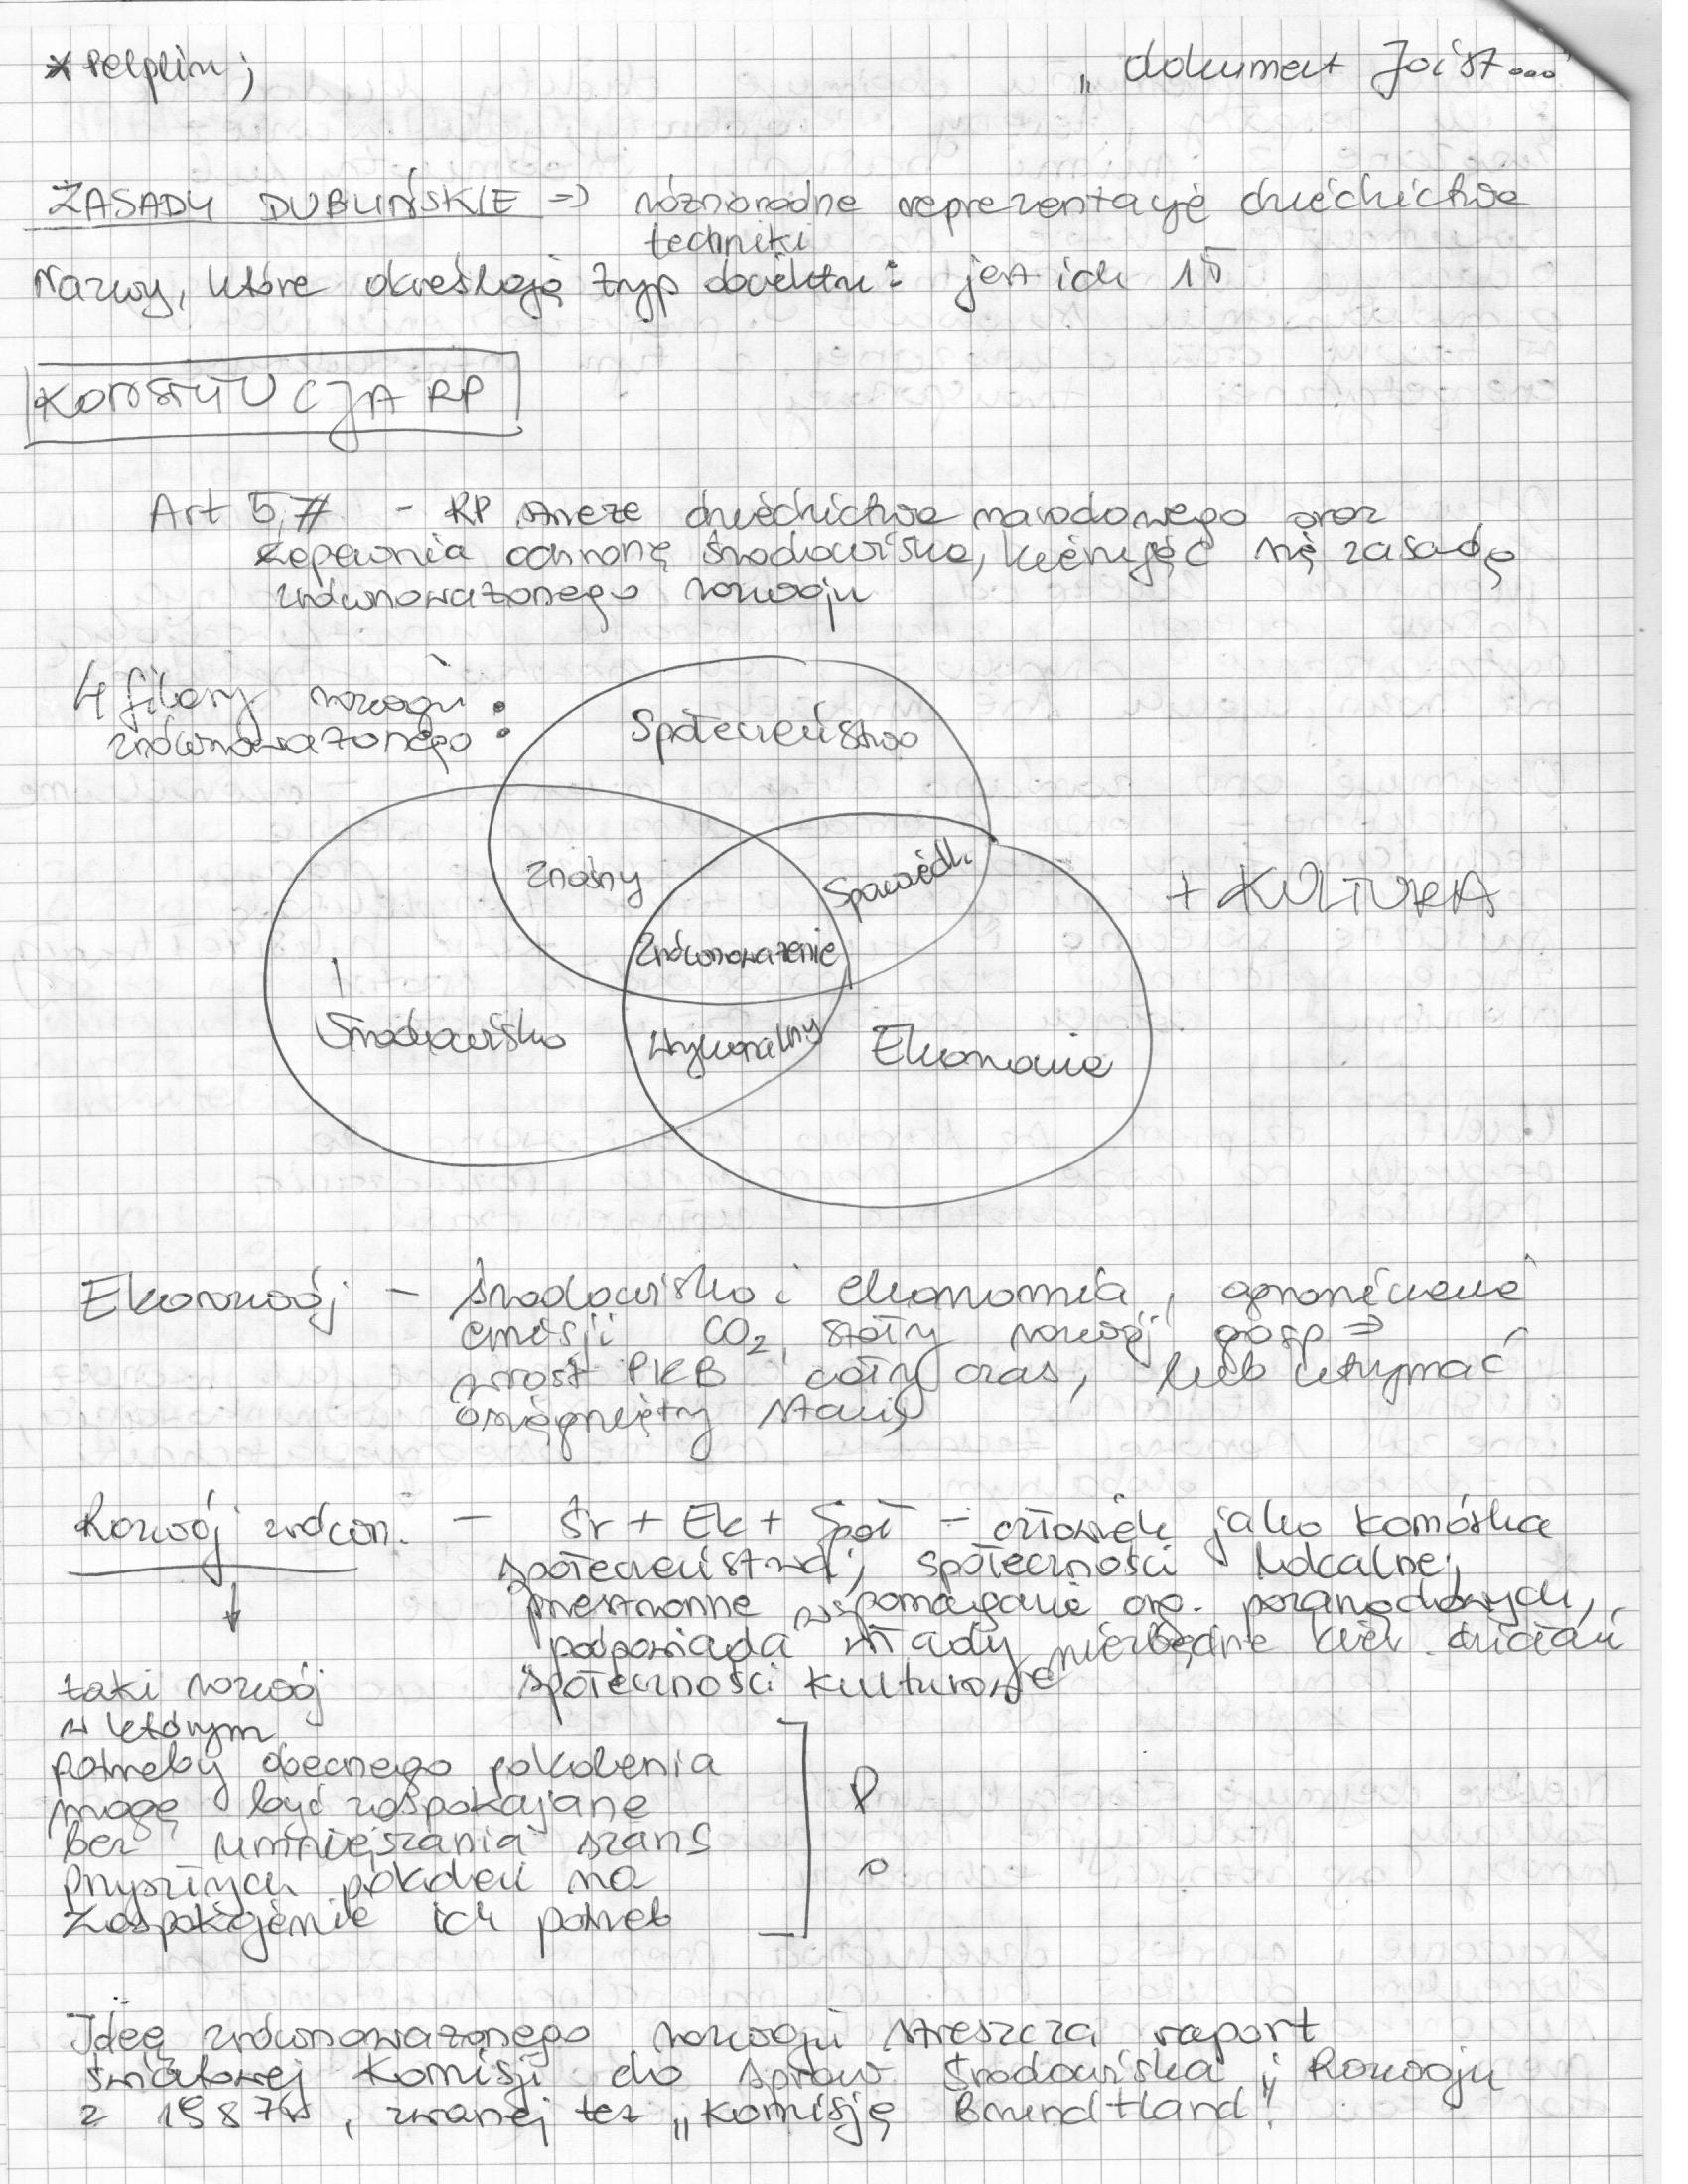 * Pelplin;
„dokument Joist..."
ZASADY DUBLIŃSKIE => różnorodne reprezentację dziedzictwa
techniki
Nazwy, które określają typ obiektu: jest ich 15
KONSTYTUCJA RP
Art 5 # - RP strzeże dziedzictwa narodowego oraz
zapewnia ochronę środowiska, kierując się zasadą
zrównoważonego rozwoju
4 filary rozwoju
zrównoważonego :
Społeczeństwo
Znośny
Sprawiedl.
+ KULTURA
Zrównoważenie
Środowisko
Wykonalny
Ekonomia
Ekorozwój - środowisko i ekonomia, ograniczenie
emisji CO2, stały rozwój gosp =>
wzrost PKB cały czas, lub utrzymać
osiągnięty stan
Rozwój zrówn. - Śr + Ek + Społ - człowiek jako komórka
społeczeństwa; społeczności lokalne,
wspomaganie org. pozarządowych,
podpowiada władzy niezbędne działań
społeczności kulturowe
taki rozwój
w którym
potrzeby obecnego pokolenia
mogą być zaspokajane
bez umniejszania szans
przyszłych pokoleń na
zaspokojenie ich potrzeb
!
Ideę zrównoważonego rozwoju streszcza raport
Światowej Komisji do spraw Środowiska i Rozwoju
z 1987r, zwanej też „Komisją Brundtland"